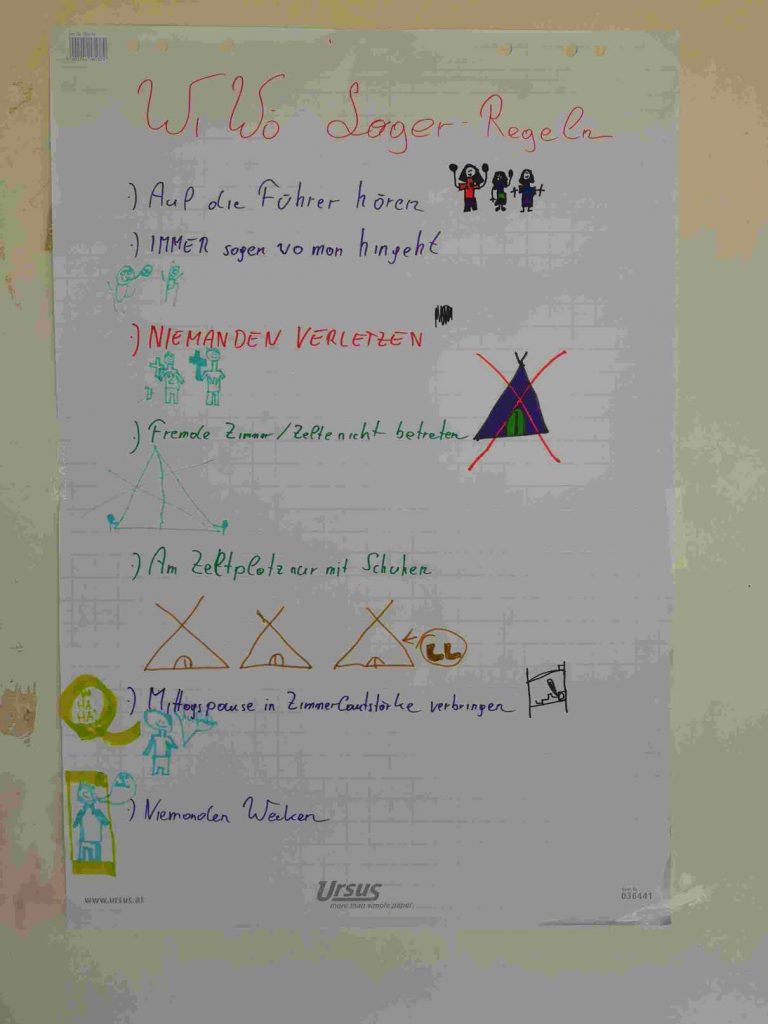 WiWö Lager-Regeln
·) Auf die Führer hören
·) IMMER sagen wo man hingeht
·) NIEMANDEN VERLETZEN
·) Fremde Zimmer/Zelte nicht betreten
·) Am Zeltplatz nur mit Schuhen
·) Mittagspause in Zimmerlautstärke verbringen
HA
HA
·) Niemanden Wecken
www.ursus.at
Ursus
more than simple paper
036441